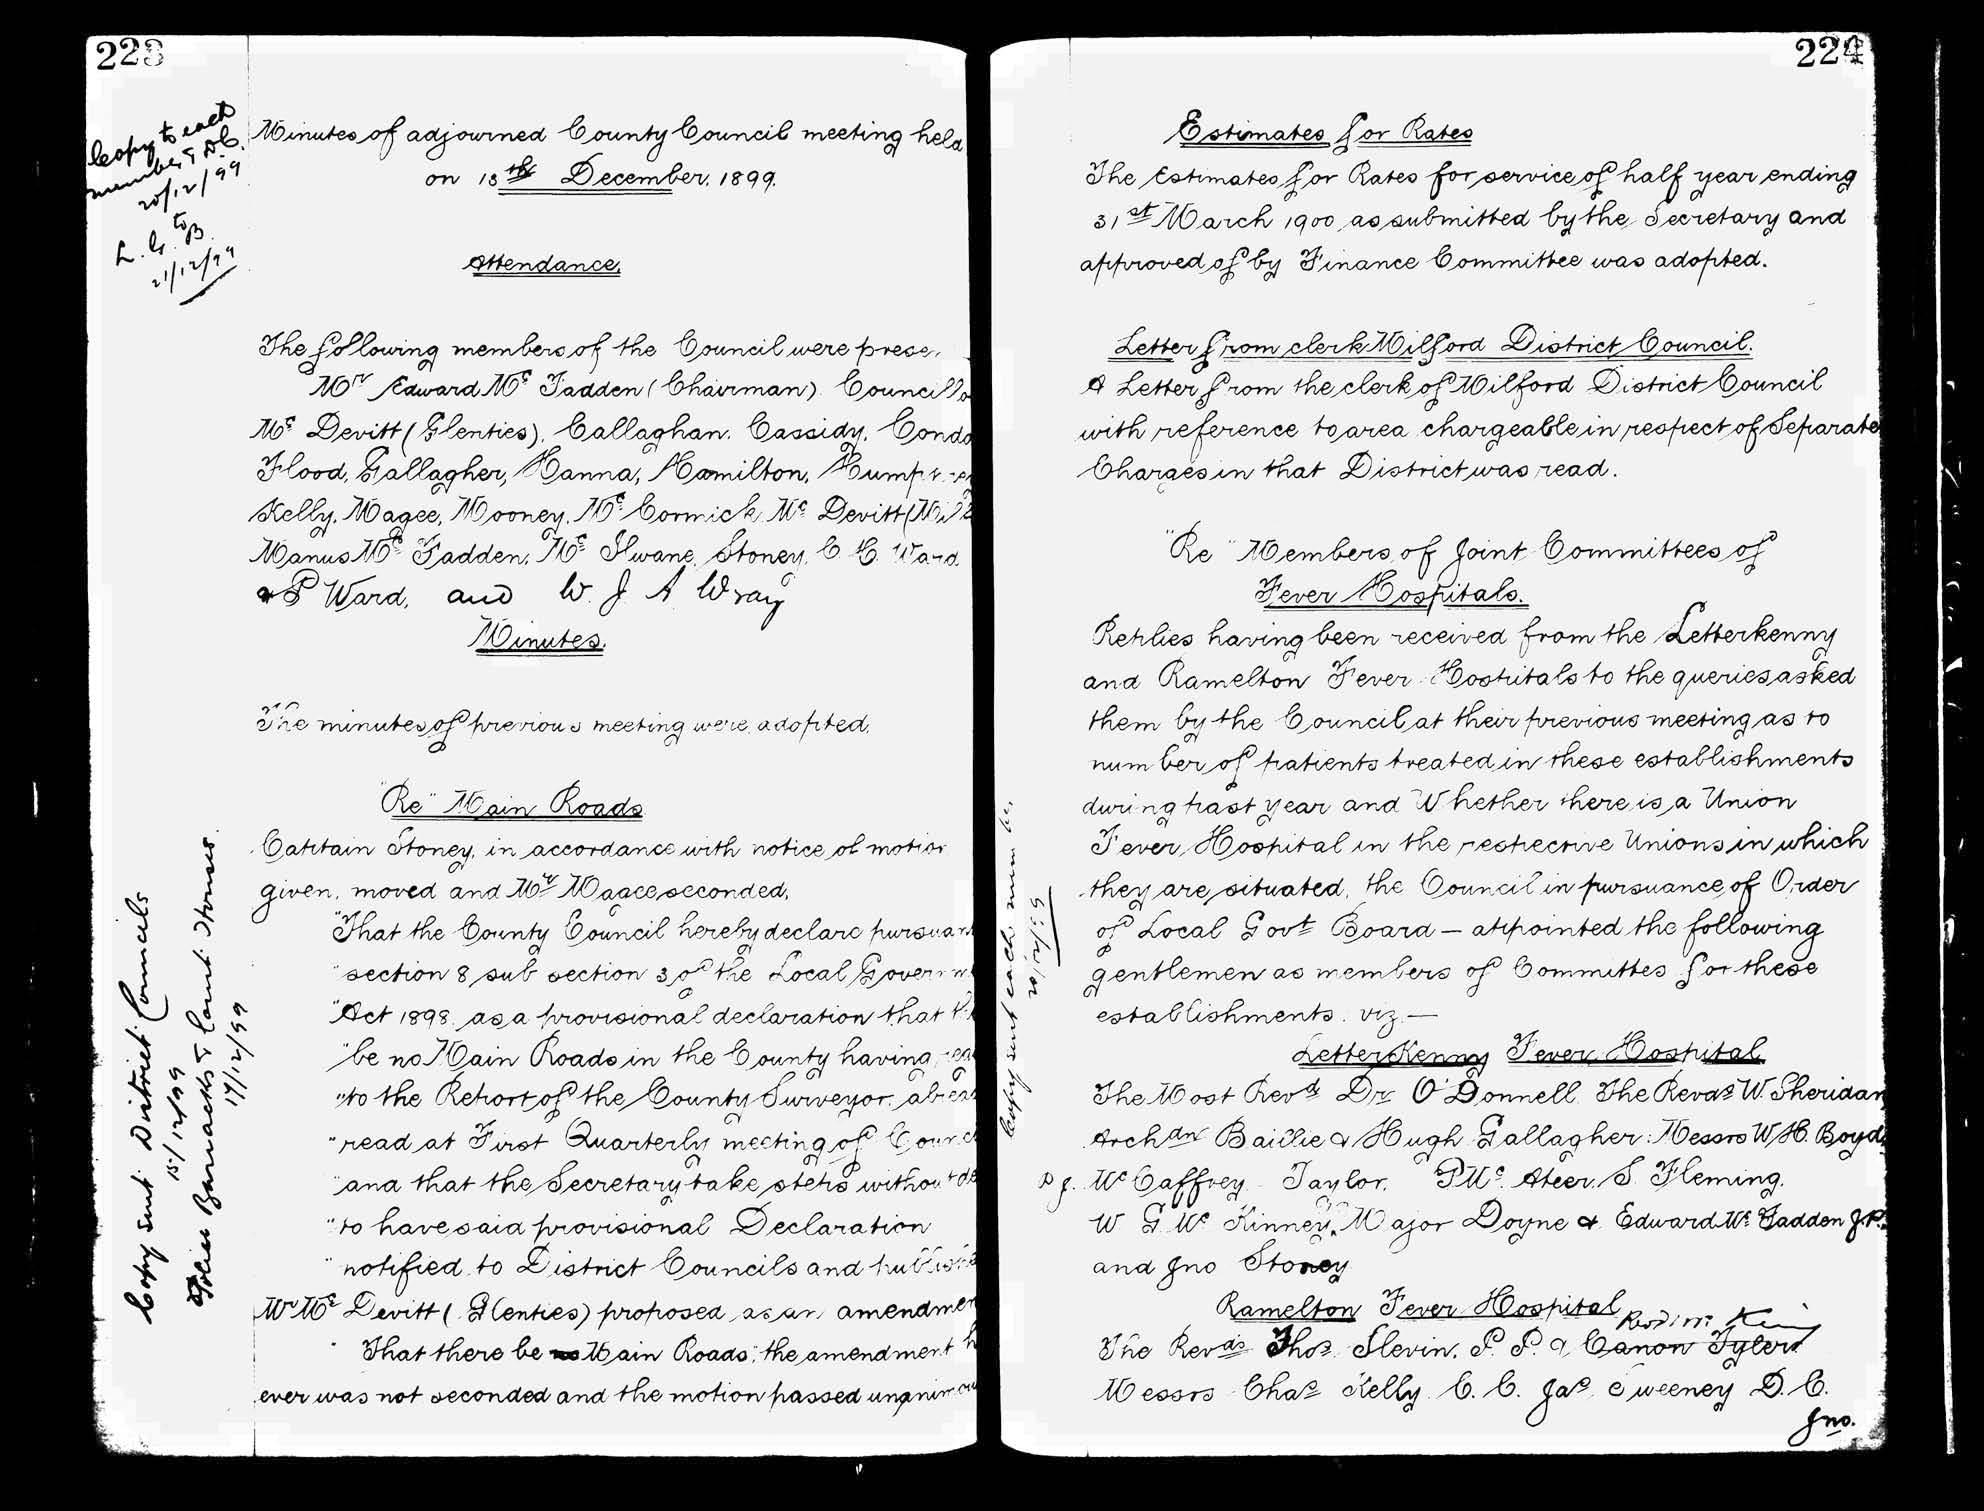 223
Copy to each
member & D.C.
20/12/99
to
L. G. B.
21/12/99
Minutes of adjourned County Council meeting held
on 13th December. 1899.
Attendance.
The following members of the Council were prese
Mr Edward Mc Fadden (Chairman). Councillo
Mc Devitt (Glenties). Callaghan. Cassidy. Condo
Flood, Gallagher, Hanna, Hamilton, Hump
Kelly. Magee, Mooney. Mc Cormick Mc Devitt (Mil
Manus Mc Fadden, Mc Ilwane, Stoney, C. C. Ward.
& P Ward, and W. J A Wray
Minutes.
The minutes of previous meeting were adopted.
"Re" Main Roads
Captain Stoney, in accordance with notice of motion
given, moved and Mr Magee seconded,
"That the County Council hereby declare pursuant
"section 8 sub section 3 of the Local Govern
"Act 1898. as a provisional declaration that th
"be no Main Roads in the County having reg
"to the Report of the County Surveyor. alrea
"read at First Quarterly meeting of Counc
"and that the Secretary take steps without de
"to have said provisional Declaration
"notified to District Councils and publishe
Mr Mc Devitt (Glenties) proposed as an amendmen
"That there be no Main Roads"; the amendment h
ever was not seconded and the motion passed unanimou
Copy sent District Councils
15/12/99
Police Barracks & Court Houses.
17/12/99
224
Estimates for Rates
The Estimates for Rates for service of half year ending
31st March 1900 as submitted by the Secretary and
approved of by Finance Committee was adopted.
Letter from clerk Milford District Council.
A Letter from the clerk of Milford District Council
with reference to area chargeable in respect of Separate
Charges in that District was read.
"Re" Members of Joint Committees of
Fever Hospitals.
Replies having been received from the Letterkenny
and Ramelton Fever Hospitals to the queries asked
them by the Council at their previous meeting as to
number of patients treated in these establishments
during past year and Whether there is a Union
Fever Hospital in the respective Unions in which
they are situated, the Council in pursuance of Order
of Local Govt Board — appointed the following
gentlemen as members of Committes for these
establishments. viz —
Copy sent each member
20/12/99
LetterKenny Fever Hospital
The Most Revd Dr O'Donnell. The Revds W. Sheridan
Archdn Baillie & Hugh Gallagher: Messrs W H. Boyd,
J. McCaffrey Taylor. P Mc Ateer. S. Fleming.
W G Mc Kinney. Major Doyne & Edward Mc Fadden J.P.
and Jno Stoney
Ramelton Fever Hospital
King
The Revds Thos Slevin. P. P. & Canon Tyler
Messrs Chas Kelly C. C. Jas Sweeney D. C.
Jno.